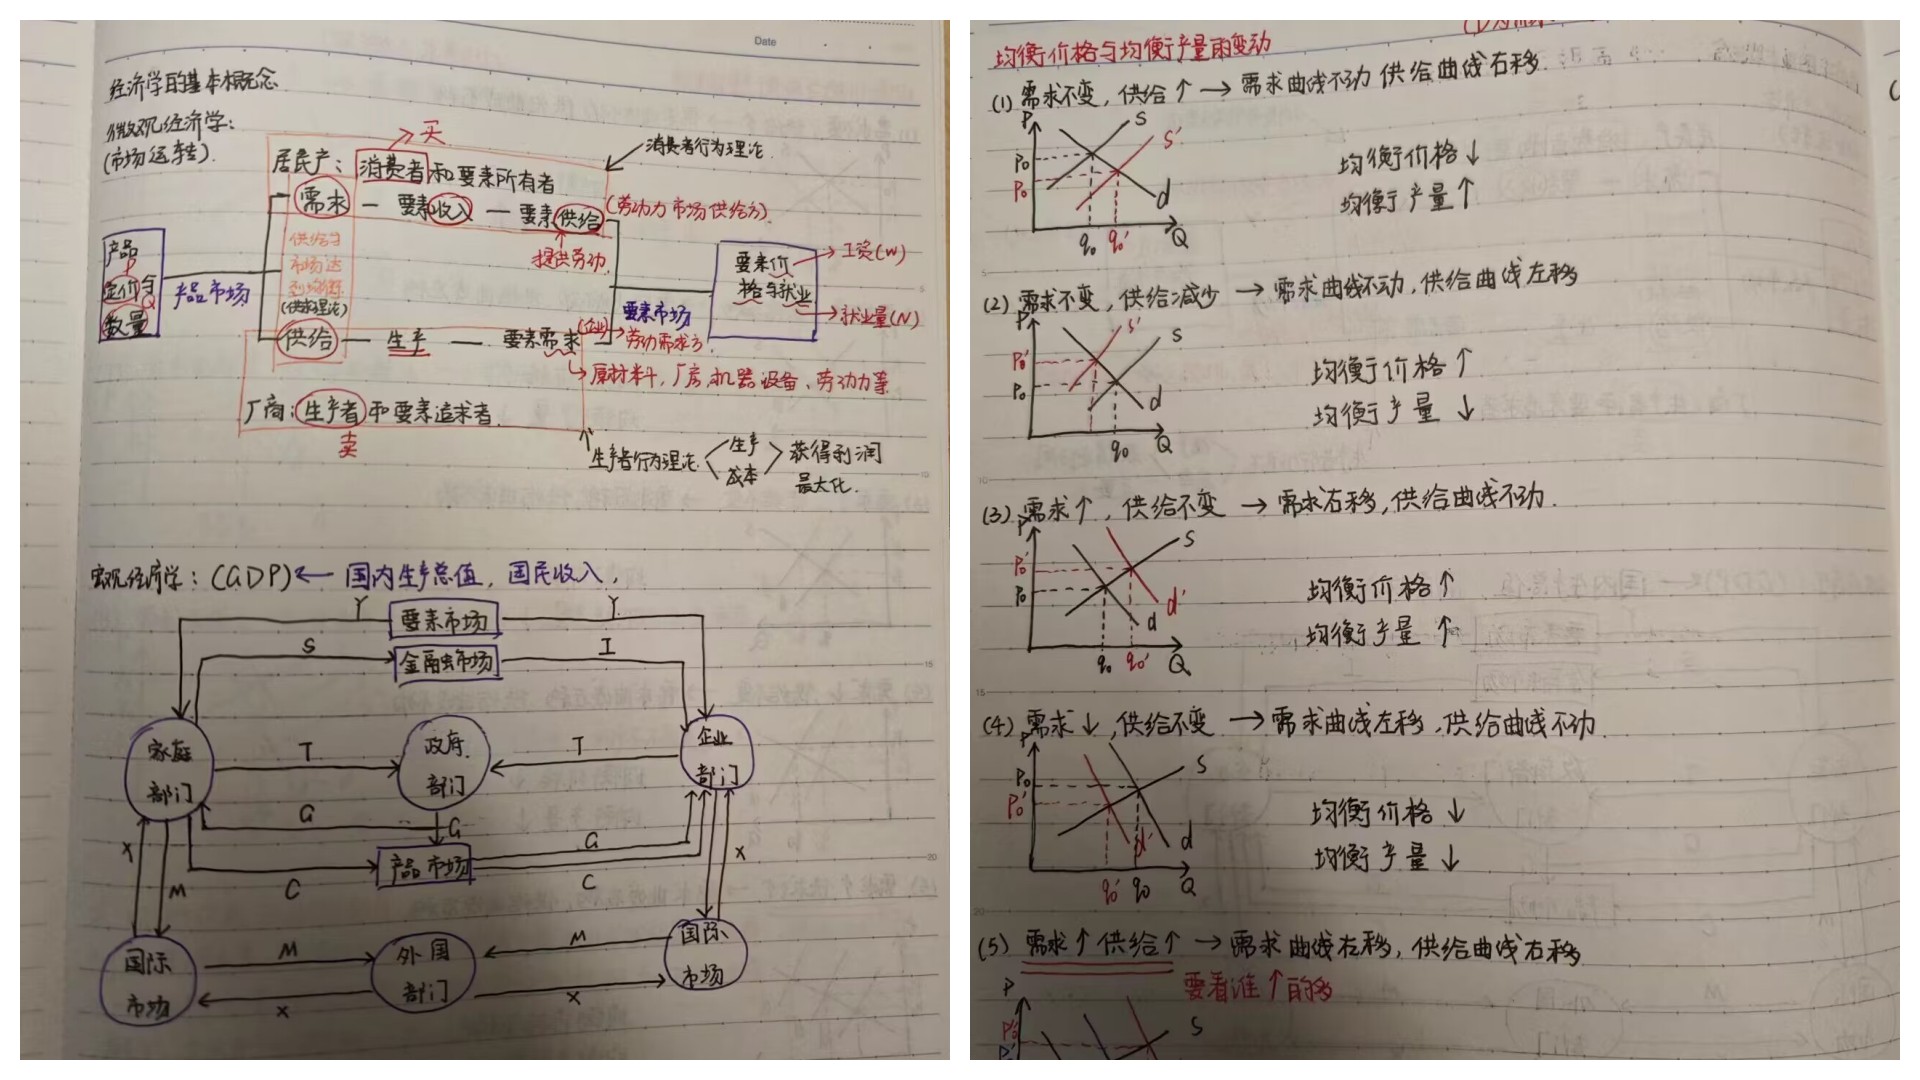 Date
经济学的基本概念
微观经济学:
(市场运转).
买
居民户: 消费者和要素所有者
消费者行为理论.
需求 — 要素收入 — 要素供给
(劳动力市场供给方).
提供劳动
供给与
市场达
到均衡
(供求理论)
产品
P
定价与
Q
数量
产品市场
要素市场
要素价
格与就业
工资(W)
就业量(N)
供给 — 生产 — 要素需求
(企业)
劳动需求方.
原材料, 厂房, 机器设备、劳动力等
厂商: 生产者和要素追求者.
卖
生产者行为理论.
生产
成本
获得利润
最大化.
宏观经济学: (GDP) ← 国内生产总值, 国民收入,
Y
要素市场
Y
S
金融市场
I
家庭
部门
T
政府
部门
T
企业
部门
G
G
产品市场
G
C
C
X
M
X
国际
市场
M
外国
部门
M
国际
市场
X
X
均衡价格与均衡产量的变动
(1) 需求不变, 供给↑ → 需求曲线不动 供给曲线右移.
P
S
S'
P₀
P₀
d
q₀
q₀'
Q
均衡价格↓
均衡产量↑
(2) 需求不变, 供给减少 → 需求曲线不动, 供给曲线左移
P
S'
S
P₀'
P₀
d
q₀
Q
均衡价格↑
均衡产量↓
(3) 需求↑, 供给不变 → 需求右移, 供给曲线不动.
P
S
P₀'
P₀
d
d'
q₀
q₀'
Q
均衡价格↑
均衡产量↑
(4) 需求↓, 供给不变 → 需求曲线左移, 供给曲线不动.
P
S
P₀
P₀'
d'
d
q₀'
q₀
Q
均衡价格↓
均衡产量↓
(5) 需求↑供给↑ → 需求曲线右移, 供给曲线右移
要看谁↑的多
P
S